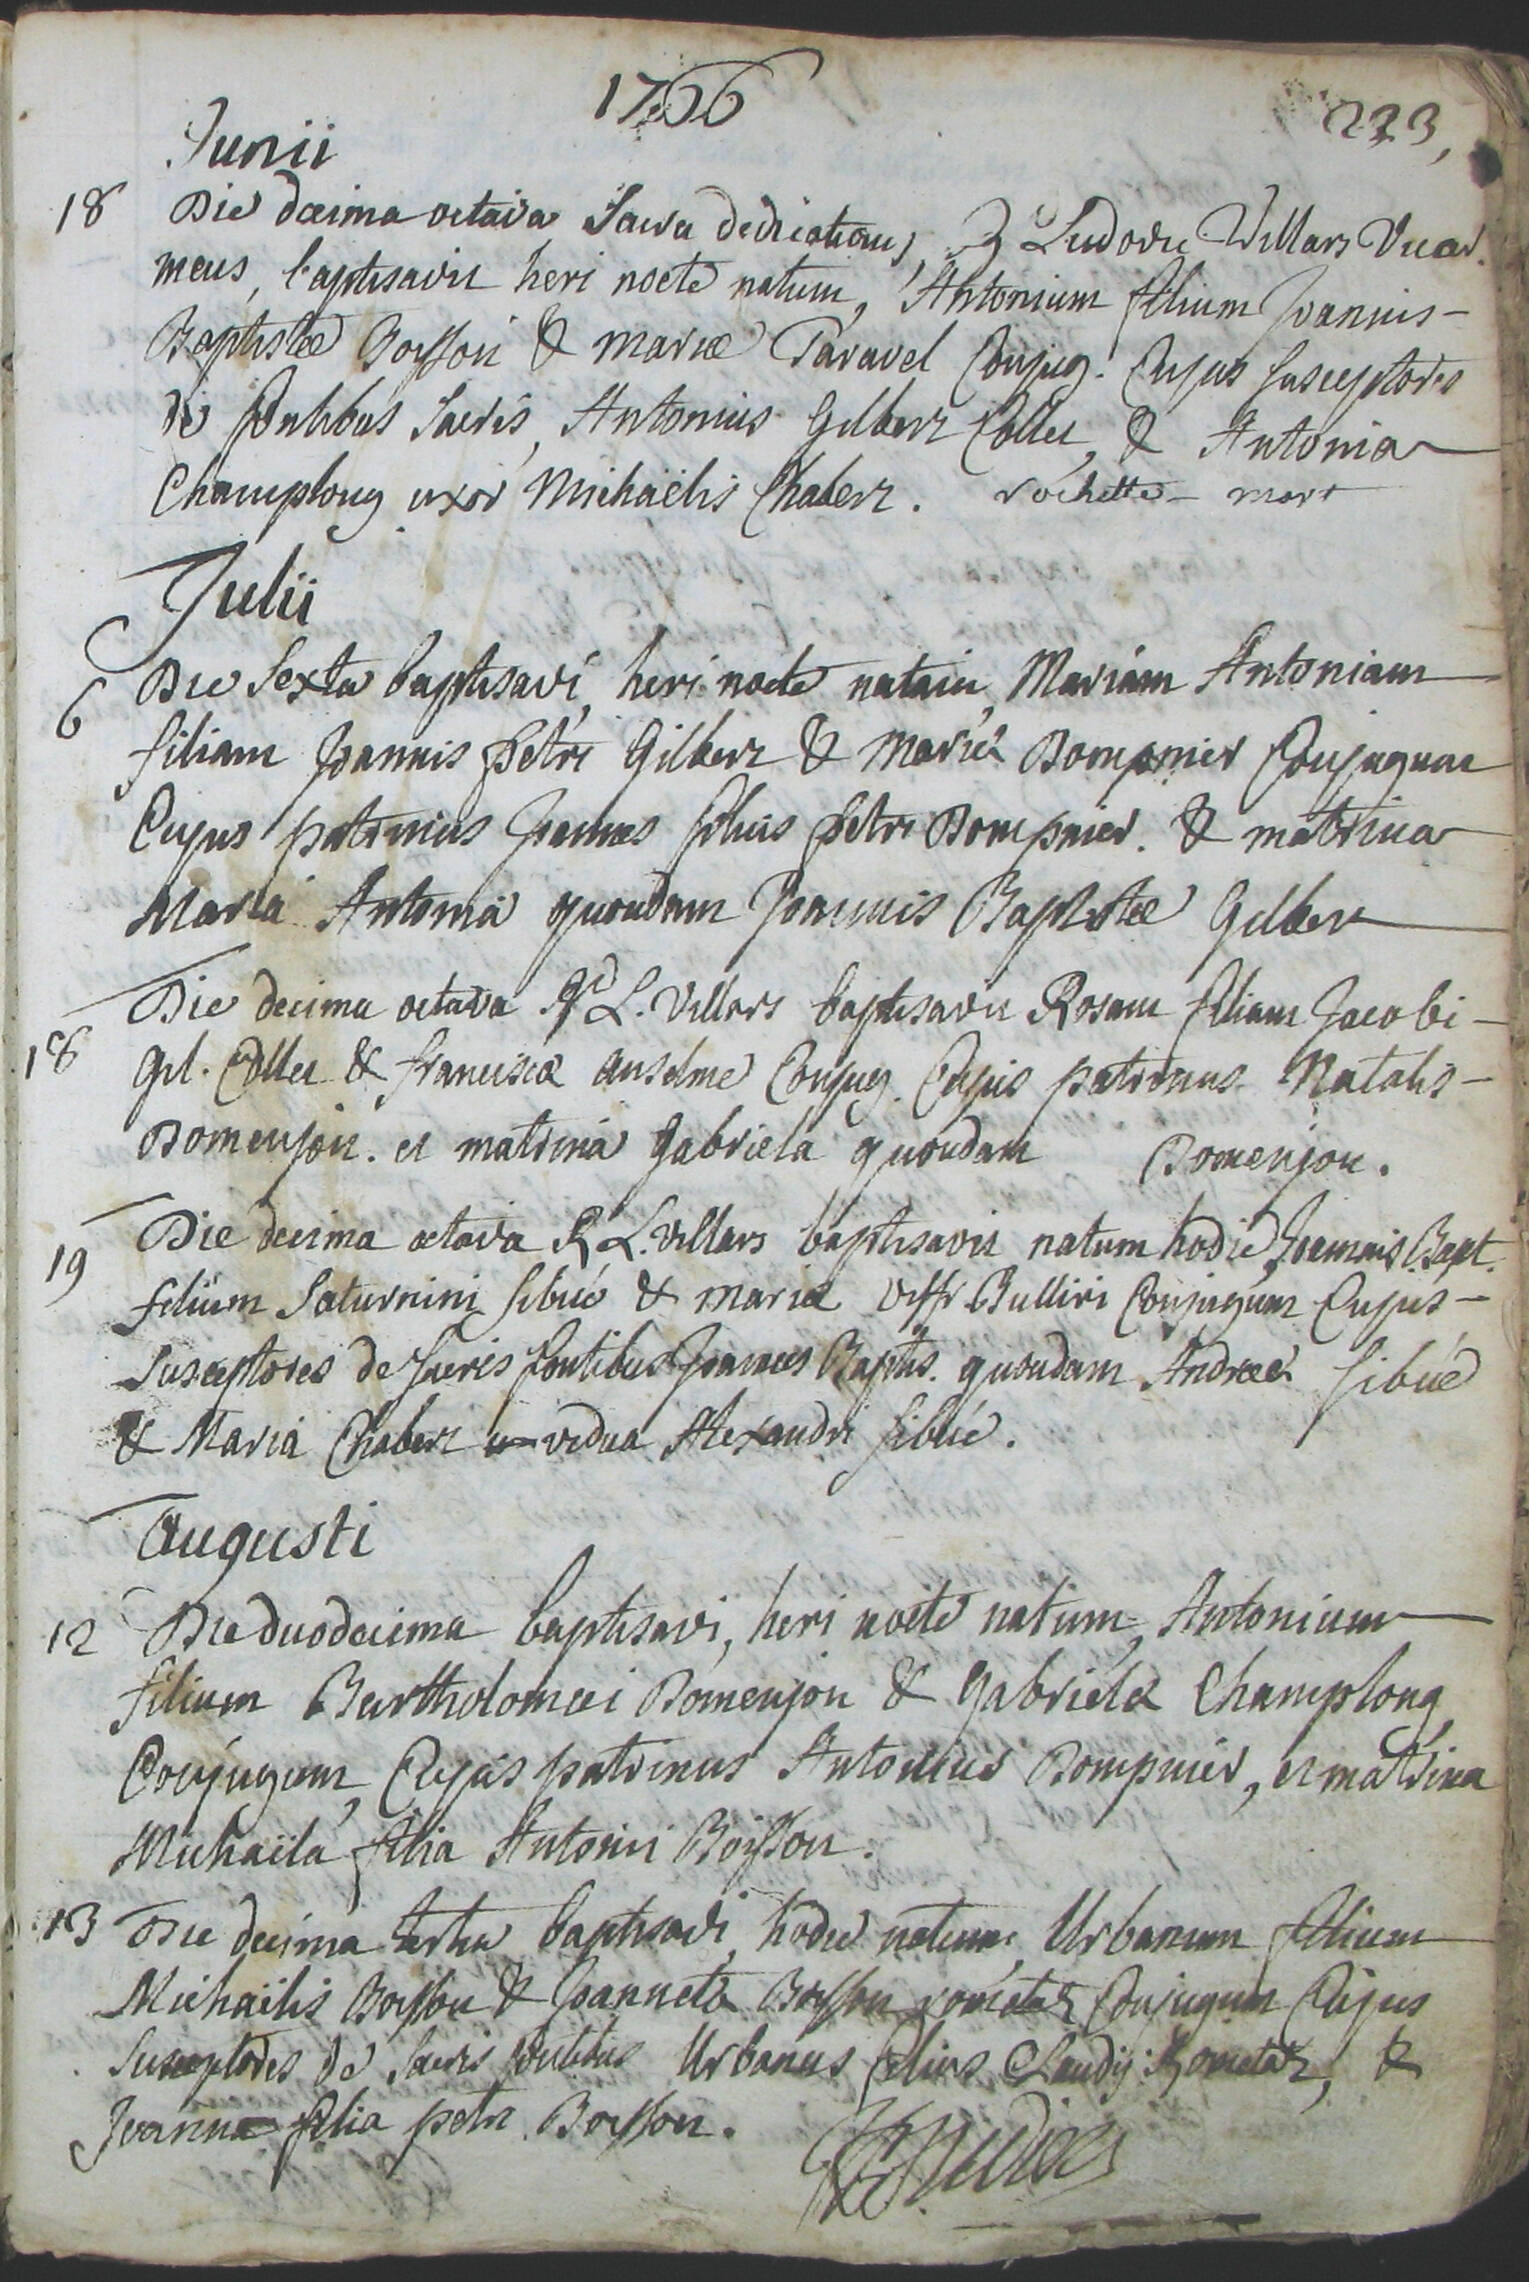 1766
223,
Junii
18 Die decima octava Sacra dedications, Rd Ludovic Villars Vicar.
meus, baptisavit heri nocte natum, Antonium filium Joannis-
Baptistæ Boisson & mariæ Paravel Conjug. Cujus susceptores
de fontibus Sacris, Antonius Gilbert Collet, & Antonia
Champlong uxor Michaëlis Chabert. rochette - mort
Julii
6 Die Sexta baptisavi, heri nocte natam, Mariam Antoniam
filiam Joannis petri Gilbert & Mariæ Bompnier Conjugum
Cujus patrinus Joannes filius petri Bompnier. & matrina
Maria Antonia quondam Joannis Baptistæ Gilbert
18 Die decima octava Rd L. Villars baptisavit Rosam filiam Jacobi-
Gil. Collet & franciscæ anselme Conjug. Cujus patrinus Natalis-
Domenjon. et matrina Gabriela quondam Domenjon.
19 Die decima octava R L. Villars baptisavit natum hodie, Joannis Bapt.
filium Saturnini sibué & mariæ Bulliri Conjugum Cujus-
Susceptores de sacris fontibus Joannes Baptis. quondam Andreæ sibué
& Maria Chabert vidua Alexandri sibué.
augusti
12 Die duodecima baptisavi, heri nocte natum, Antonium
filium Bartholomæi Domenjon & Gabrielæ Champlong
Conjugum, Cujus patrinus Antonius Bompnier, et matrina
Michaïla filia Antonii Boisson.
13 Die decima tertia baptisavi, hodie natum, Urbanum filium
Michaïlis Boisson & Joannetæ Boisson rometaz Conjugum Cujus
Susceptores de Sacris fontibus Urbanus filius Claudij Rometaz, &
Joanna filia petri Boisson.